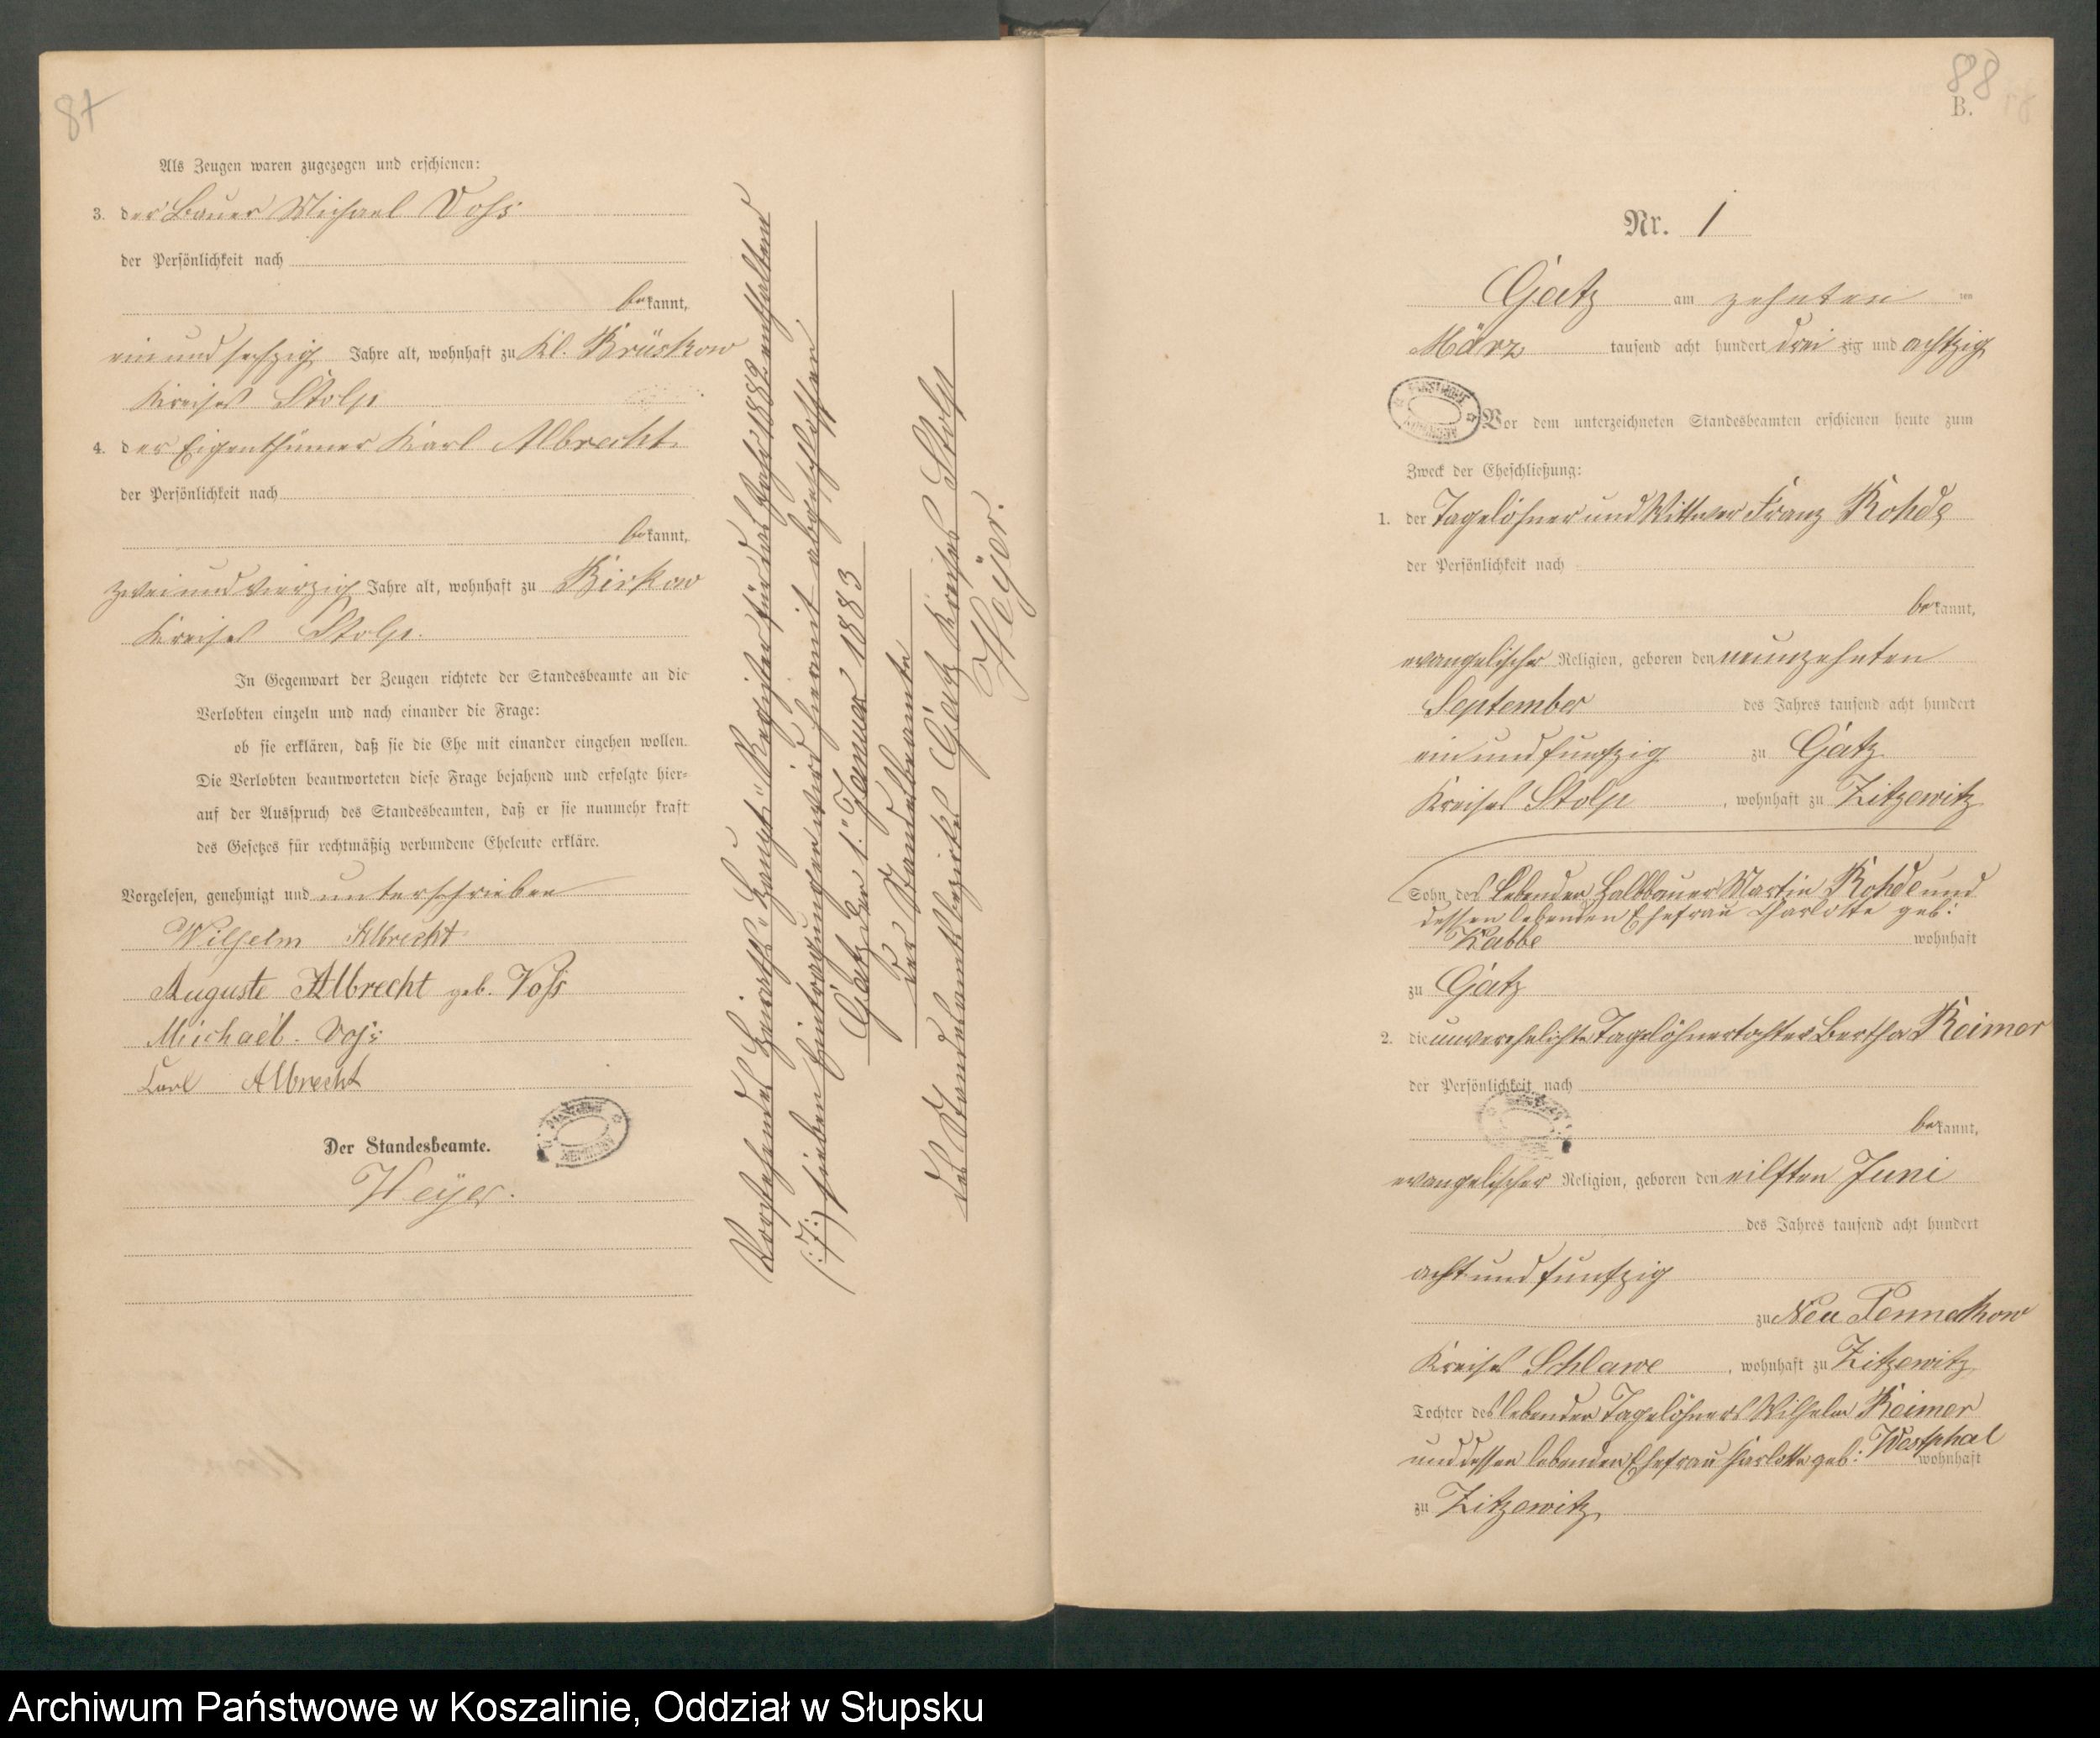 87
Als Zeugen waren zugezogen und erschienen:
3. der Bauer Michael Voss
der Persönlichkeit nach
bekannt,
ein und sechzig Jahre alt, wohnhaft zu Kl. Brüskow
Kreises Stolp
4. der Eigenthümer Karl Albrecht
der Persönlichkeit nach
bekannt,
zwei und vierzig Jahre alt, wohnhaft zu Birkow
Kreises Stolp.
In Gegenwart der Zeugen richtete der Standesbeamte an die
Verlobten einzeln und nach einander die Frage:
ob sie erklären, daß sie die Ehe mit einander eingehen wollen.
Die Verlobten beantworteten diese Frage bejahend und erfolgte hier-
auf der Ausspruch des Standesbeamten, daß er sie nunmehr kraft
des Gesetzes für rechtmäßig verbundene Eheleute erkläre.
Vorgelesen, genehmigt und unterschrieben
Wilhelm Albrecht
Auguste Albrecht geb. Voß
Michael Voß
Carl Albrecht
Der Standesbeamte.
Heyer.
Vorstehendes Heiraths-Haupt-Register für das Jahr 1882 enthaltend
(:7:) sieben Eintragungen wird hiermit abgeschlossen
Gatz den 1. Januar 1883
Der Standesbeamte
des Standesamtsbezirks Gatz Kreises Stolp
Heyer.
88
B.
Nr. 1
Gatz am zehnten ten
März tausend acht hundert drei zig und achtzig
Vor dem unterzeichneten Standesbeamten erschienen heute zum
Zweck der Eheschließung:
1. der Tagelöhner und Wittwer Franz Rohde
der Persönlichkeit nach
bekannt,
evangelischer Religion, geboren den neunzehnten
September des Jahres tausend acht hundert
ein und funfzig zu Gatz
Kreises Stolp, wohnhaft zu Zitzewitz
Sohn des lebenden Halbbauer Martin Rohde und
dessen lebenden Ehefrau Charlotte geb:
Kabbe wohnhaft
zu Gatz
2. die unverehelichte Tagelöhnertochter Bertha Reimer
der Persönlichkeit nach
bekannt,
evangelischer Religion, geboren den eilften Juni
des Jahres tausend acht hundert
acht und funfzig
zu Neu Pennekow
Kreises Schlawe, wohnhaft zu Zitzewitz
Tochter des lebenden Tagelöhners Wilhelm Reimer
und dessen lebenden Ehefrau Charlotte geb: Westphal
wohnhaft
zu Zitzewitz
Archiwum Państwowe w Koszalinie, Oddział w Słupsku